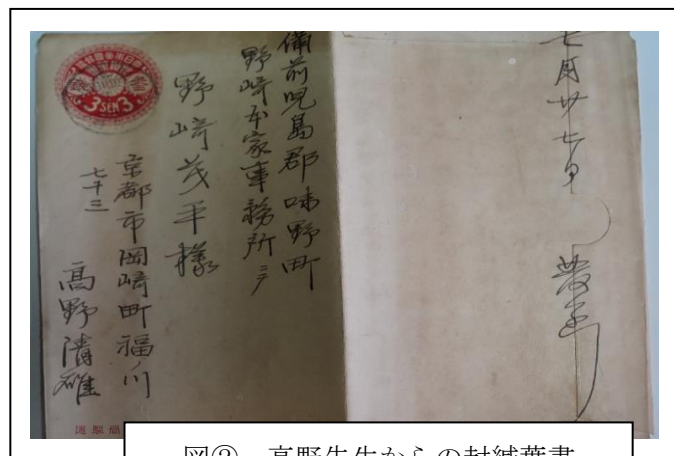 七月廿七日
備前児島郡味野町
野崎本家事務所ニテ
野崎茂平様
京都市岡崎町福ノ川
七十三
高野清雄
3 SEN 3
図② 高野先生からの封緘葉書